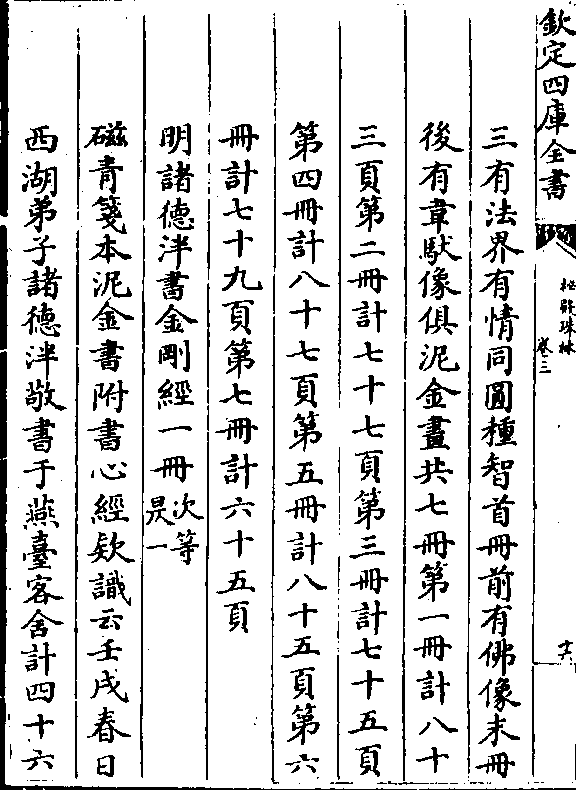 欽定四庫全書
秘殿珠林
卷三
十六
三有法界有情同圓種智首冊前有佛像末冊
後有韋馱像俱泥金畫共七冊第一冊計八十
三頁第二冊計七十七頁第三冊計七十五頁
第四冊計八十七頁第五冊計八十五頁第六
冊計七十九頁第七冊計六十五頁
明諸德泮書金剛經一冊次等
昃一
磁青箋本泥金書附書心經欵識云壬戌春日
西湖弟子諸德泮敬書于燕臺客舍計四十六